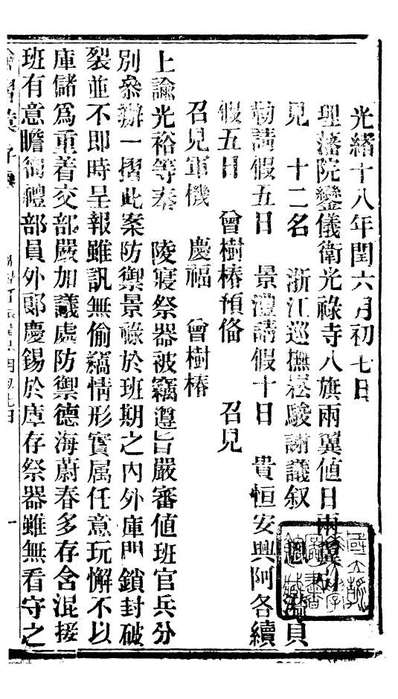 光緒十八年閏六月初七日
理藩院鑾儀衛光祿寺八旗兩翼値日兩翼
見 十二名 浙江巡撫崧駿謝議叙 恩 滿員
勒請假五日 景灃請假十日 貴恒安興阿各續
假五日 曾樹椿預俻 召見
召見軍機 慶福 曾樹椿
上諭光裕等奏 陵寢祭器被竊遵旨嚴審値班官兵分
別叅辦一摺此案防禦景祿於班期之內外庫門鎖封破
裂並不卽時呈報雖訊無偷竊情形實属任意玩懈不以
庫儲爲重着交部嚴加議處防禦德海蔚春多存含混接
班有意瞻徇禮部員外郎慶錫於庫存祭器雖無看守之
一